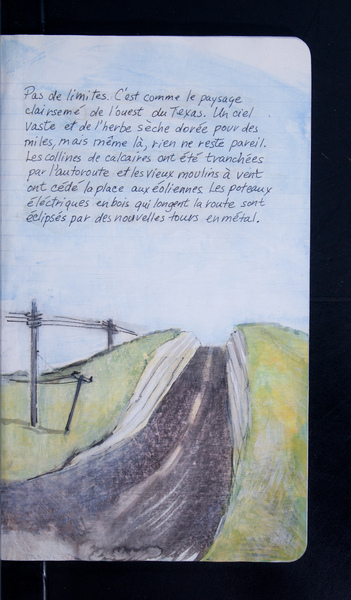 Pas de limites. C'est comme le paysage
clairsemé de l'ouest du Texas. Un ciel
vaste et de l'herbe sèche dorée pour des
miles, mais même là, rien ne reste pareil.
Les collines de calcaires ont été tranchées
par l'autoroute et les vieux moulins à vent
ont cédé la place aux éoliennes. Les poteaux
électriques en bois qui longent la route sont
éclipsés par des nouvelles tours en métal.